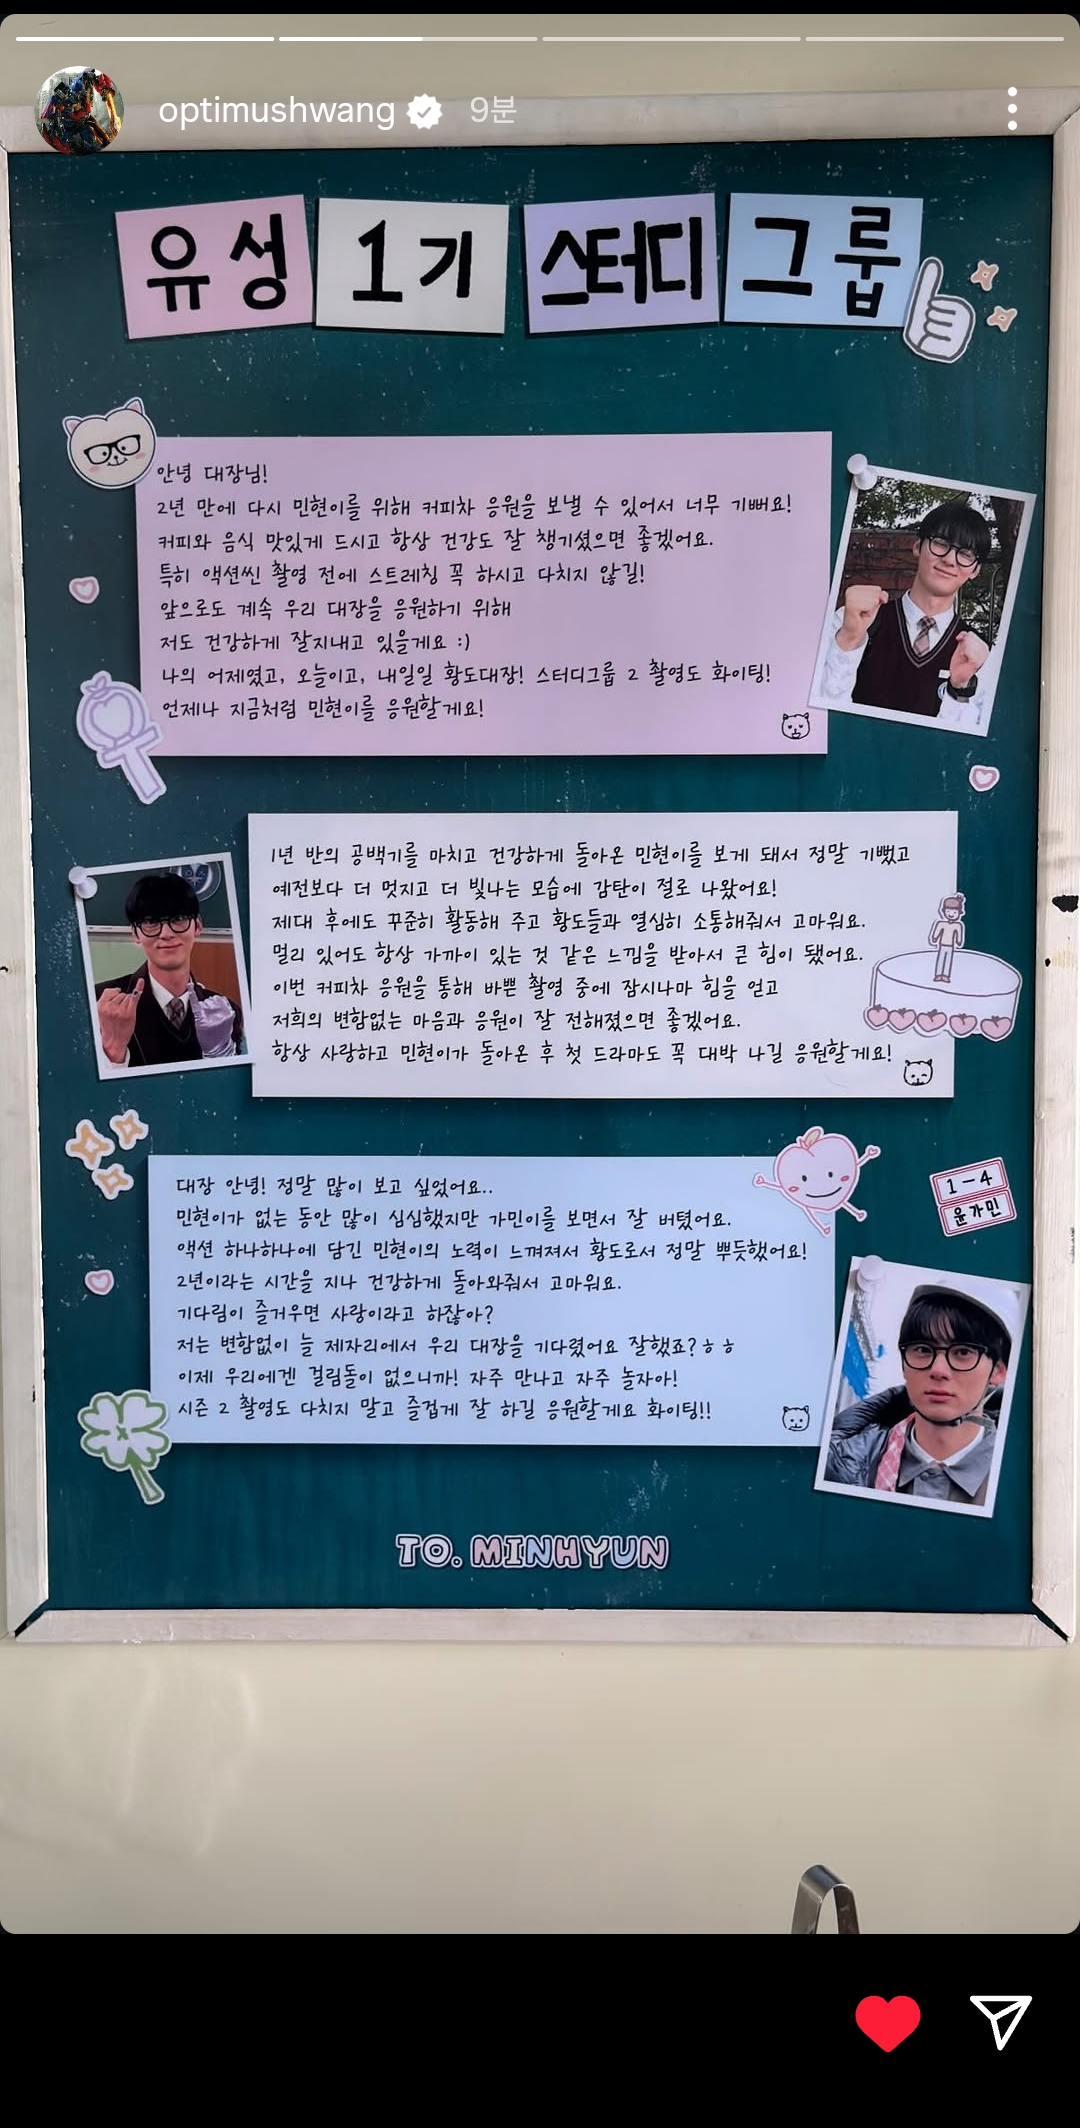 optimushwang 9분
유성 1기 스터디 그룹
안녕 대장님!
2년 만에 다시 민현이를 위해 커피차 응원을 보낼 수 있어서 너무 기뻐요!
커피와 음식 맛있게 드시고 항상 건강도 잘 챙기셨으면 좋겠어요.
특히 액션씬 촬영 전에 스트레칭 꼭 하시고 다치지 않길!
앞으로도 계속 우리 대장을 응원하기 위해
저도 건강하게 잘지내고 있을게요 :)
나의 어제였고, 오늘이고, 내일일 황도대장! 스터디그룹 2 촬영도 화이팅!
언제나 지금처럼 민현이를 응원할게요!
1년 반의 공백기를 마치고 건강하게 돌아온 민현이를 보게 돼서 정말 기뻤고
예전보다 더 멋지고 더 빛나는 모습에 감탄이 절로 나왔어요!
제대 후에도 꾸준히 활동해 주고 황도들과 열심히 소통해줘서 고마워요.
멀리 있어도 항상 가까이 있는 것 같은 느낌을 받아서 큰 힘이 됐어요.
이번 커피차 응원을 통해 바쁜 촬영 중에 잠시나마 힘을 얻고
저희의 변함없는 마음과 응원이 잘 전해졌으면 좋겠어요.
항상 사랑하고 민현이가 돌아온 후 첫 드라마도 꼭 대박 나길 응원할게요!
대장 안녕! 정말 많이 보고 싶었어요..
민현이가 없는 동안 많이 심심했지만 가민이를 보면서 잘 버텼어요.
액션 하나하나에 담긴 민현이의 노력이 느껴져서 황도로서 정말 뿌듯했어요!
2년이라는 시간을 지나 건강하게 돌아와줘서 고마워요.
기다림이 즐거우면 사랑이라고 하잖아?
저는 변함없이 늘 제자리에서 우리 대장을 기다렸어요 잘했죠? ㅎㅎ
이제 우리에겐 걸림돌이 없으니까! 자주 만나고 자주 놀자아!
시즌 2 촬영도 다치지 말고 즐겁게 잘 하길 응원할게요 화이팅!!
1-4
윤가민
TO. MINHYUN